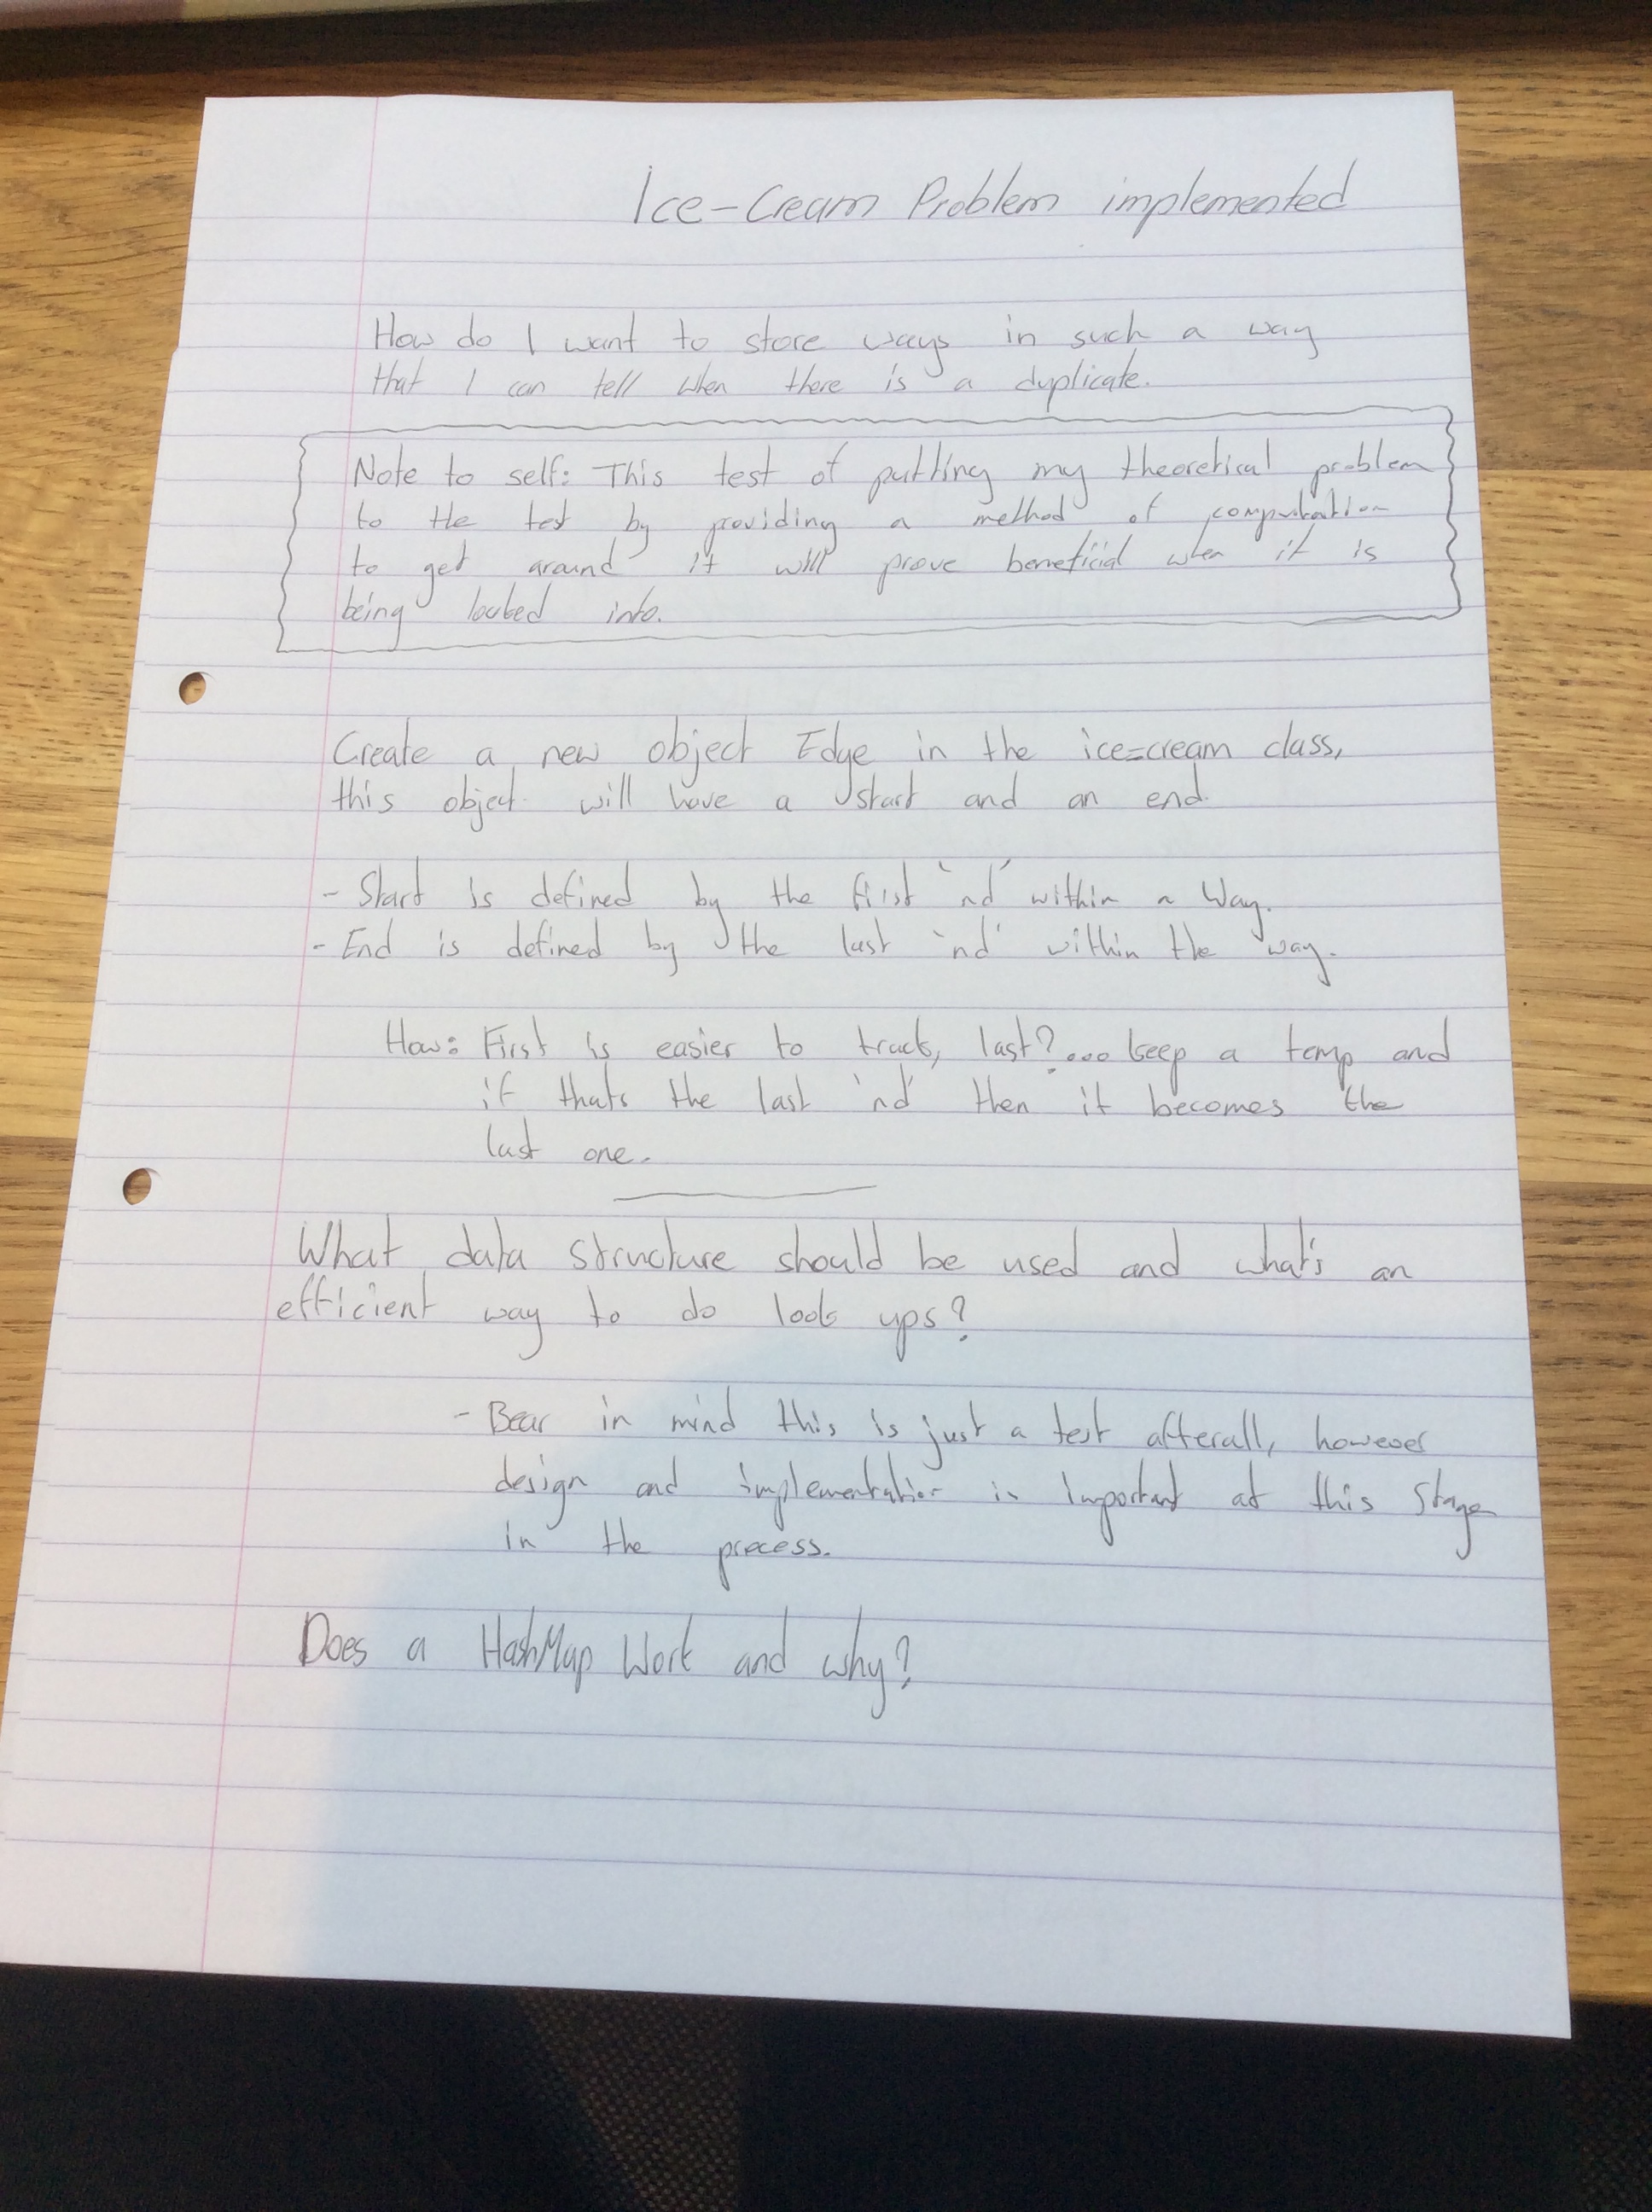 Ice-Cream Problem implemented
How do I want to store ways in such a way
that I can tell when there is a duplicate.
Note to self: This test of putting my theoretical problem
to the test by providing a method of computation
to get around it will prove beneficial when it is
being looked into.
Create a new object Edge in the ice-cream class,
this object will have a start and an end.
- Start is defined by the first `nd´ within a Way.
- End is defined by the last `nd' within the way.
How: First is easier to track, last?... keep a temp and
if thats the last 'nd' then it becomes the
last one.
What data structure should be used and what's an
efficient way to do look ups?
- Bear in mind this is just a test afterall, however
design and implementation is important at this stage
in the process.
Does a HashMap Work and why?